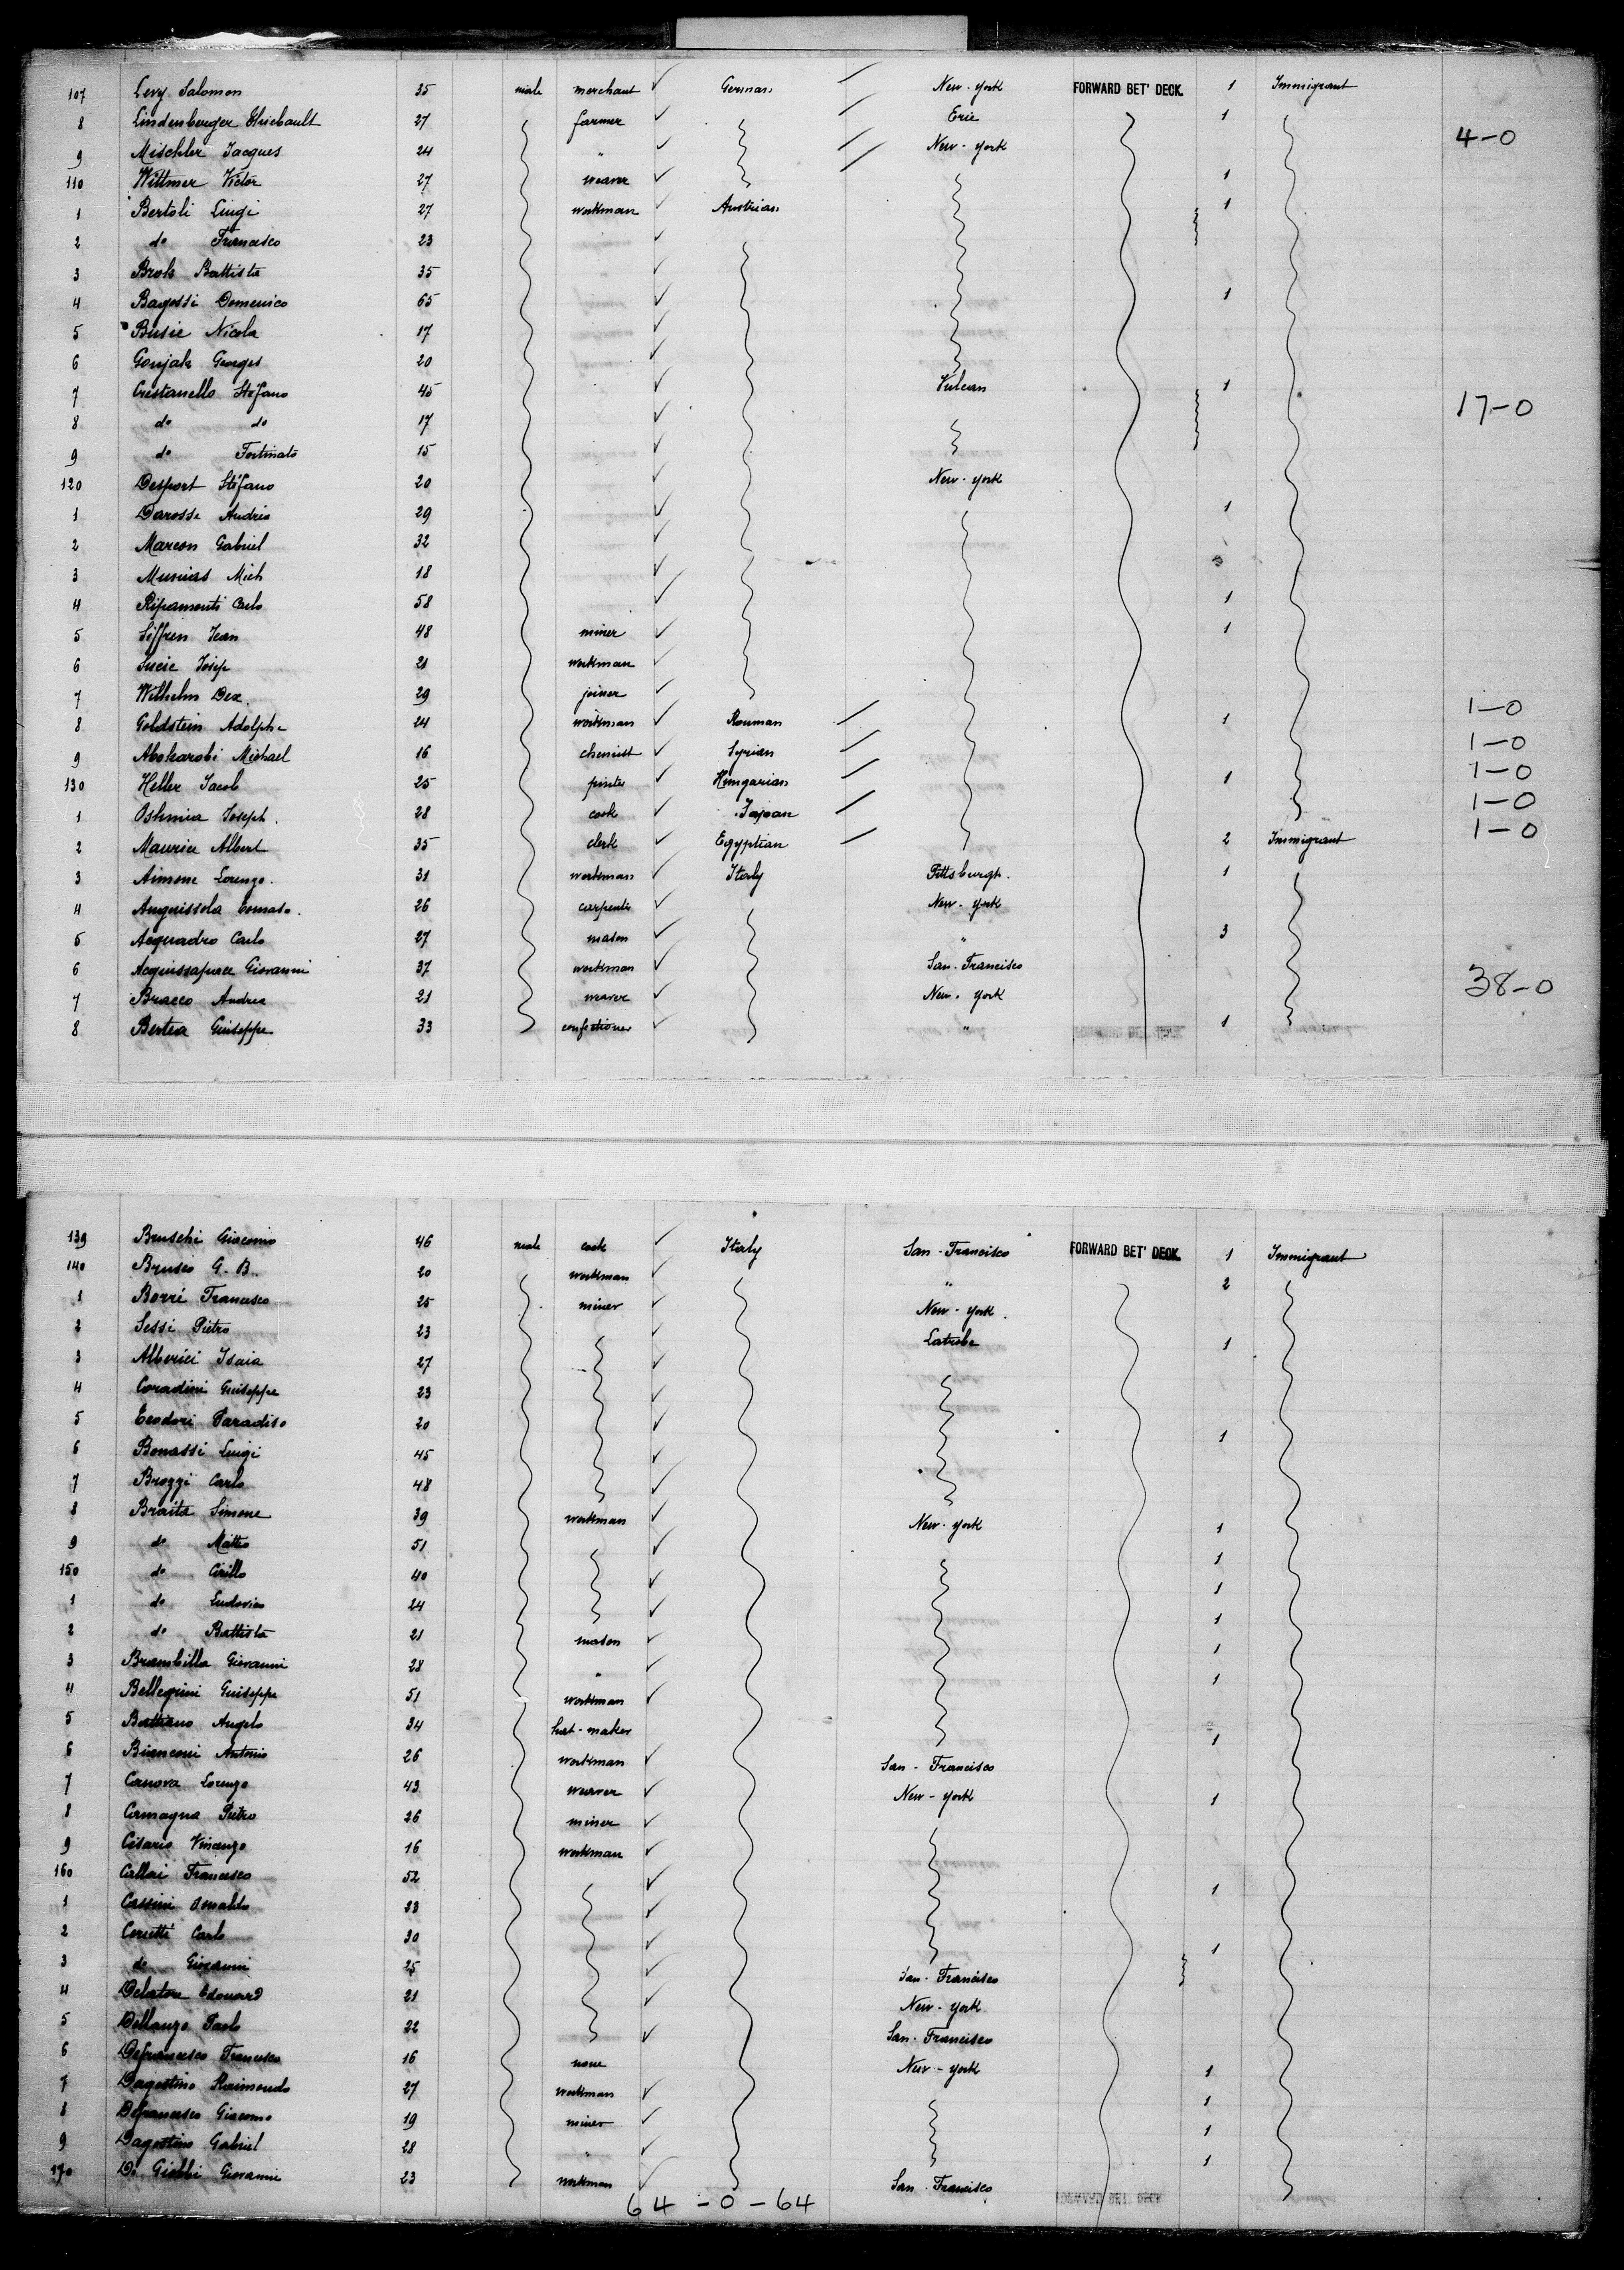 107 Levy Salomon 35 male merchant German New-York FORWARD BET' DECK. 1 Immigrant
8 Lindenberger Thiebault 27 farmer Erie 1 4-0
9 Mischler Jacques 24 " New-York
110 Wittmer Victor 27 weaver 1
1 Bertoli Luigi 27 workman Austrian 1
2 do Francesco 23
3 Brok Battista 35
4 Bagossi Domenico 65 1
5 Busie Nicola 17
6 Georges 20
7 Cristanello Stéfano 45 Vulcan 1 17-0
8 do do 17
9 do Fortunato 15
120 Desport Stéfano 20 New-York
1 Darosse Andrea 29 1
2 Marcon Gabriel 32
3 Mich 18
4 Ripamonti Carlo 58 1
5 Siffren Jean 48 miner 1
6 Josip 21 workman
7 Wilhelm Dex. 29 joiner
8 Goldstein Adolphe 24 workman Rouman 1 1-0
9 Michael 16 chemist Syrian 1-0
130 Heller Jacob 25 printer Hungarian 1 1-0
1 Joseph. 28 cook Japan 1-0
2 Maurice Albert 35 clerk Egyptian 2 Immigrant 1-0
3 Aimone Lorenzo. 31 workman Italy Pittsburgh. 1
4 Anguissola Tomaso. 26 carpenter New-York
5 Acquadro Carlo 27 mason " 3
6 Giovanni 37 workman San-Francisco
7 Bracco Andrea 21 weaver New-York 38-0
8 Bertea Giuseppe 33 confectioner " 1
139 Bruschi Giacomo 46 male cook Italy San-Francisco FORWARD BET' DECK. 1 Immigrant
140 Brusco G. B. 20 workman " 2
1 Borri Francesco 25 miner New-York.
2 Sessi Pietro 23 Latrobe 1
3 Alberici Isaia 27
4 Coradini Guiseppe 23
5 Teodori Paradiso 20
6 Bonassi Luigi 45 1
7 Broggi Carlo 48
8 Braita Simone 39 workman New-York 1
9 do Matteo 51 1
150 do Cirillo 40 1
1 do Ludovico 24 1
2 do Battista 21 mason 1
3 Brambilla Giovanni 28 " 1
4 Bellegrini Guiseppe 51 workman
5 Angelo 34 hat-maker 1
6 Bianconi Antonio 26 workman San-Francisco
7 Canova Lorenzo 43 weaver New-York 1
8 Carmagna Pietro 26 miner
9 Cesario Vincenzo 16 workman
160 Callai Francesco 52 1
1 Cassini 33
2 Carlo 30 1
3 do Giovanni 25 San-Francisco
4 Delatore Edouard 21 New-York
5 Dellanzo Paolo 22 San-Francisco
6 Defrancesco Francesco 16 none New-York 1
7 Dagostino Raimondo 27 workman 1
8 Defrancesco Giacomo 19 miner 1
9 Dagostino Gabriel 28 " 1
170 Di Giovanni 23 workman San-Francisco
64-0-64